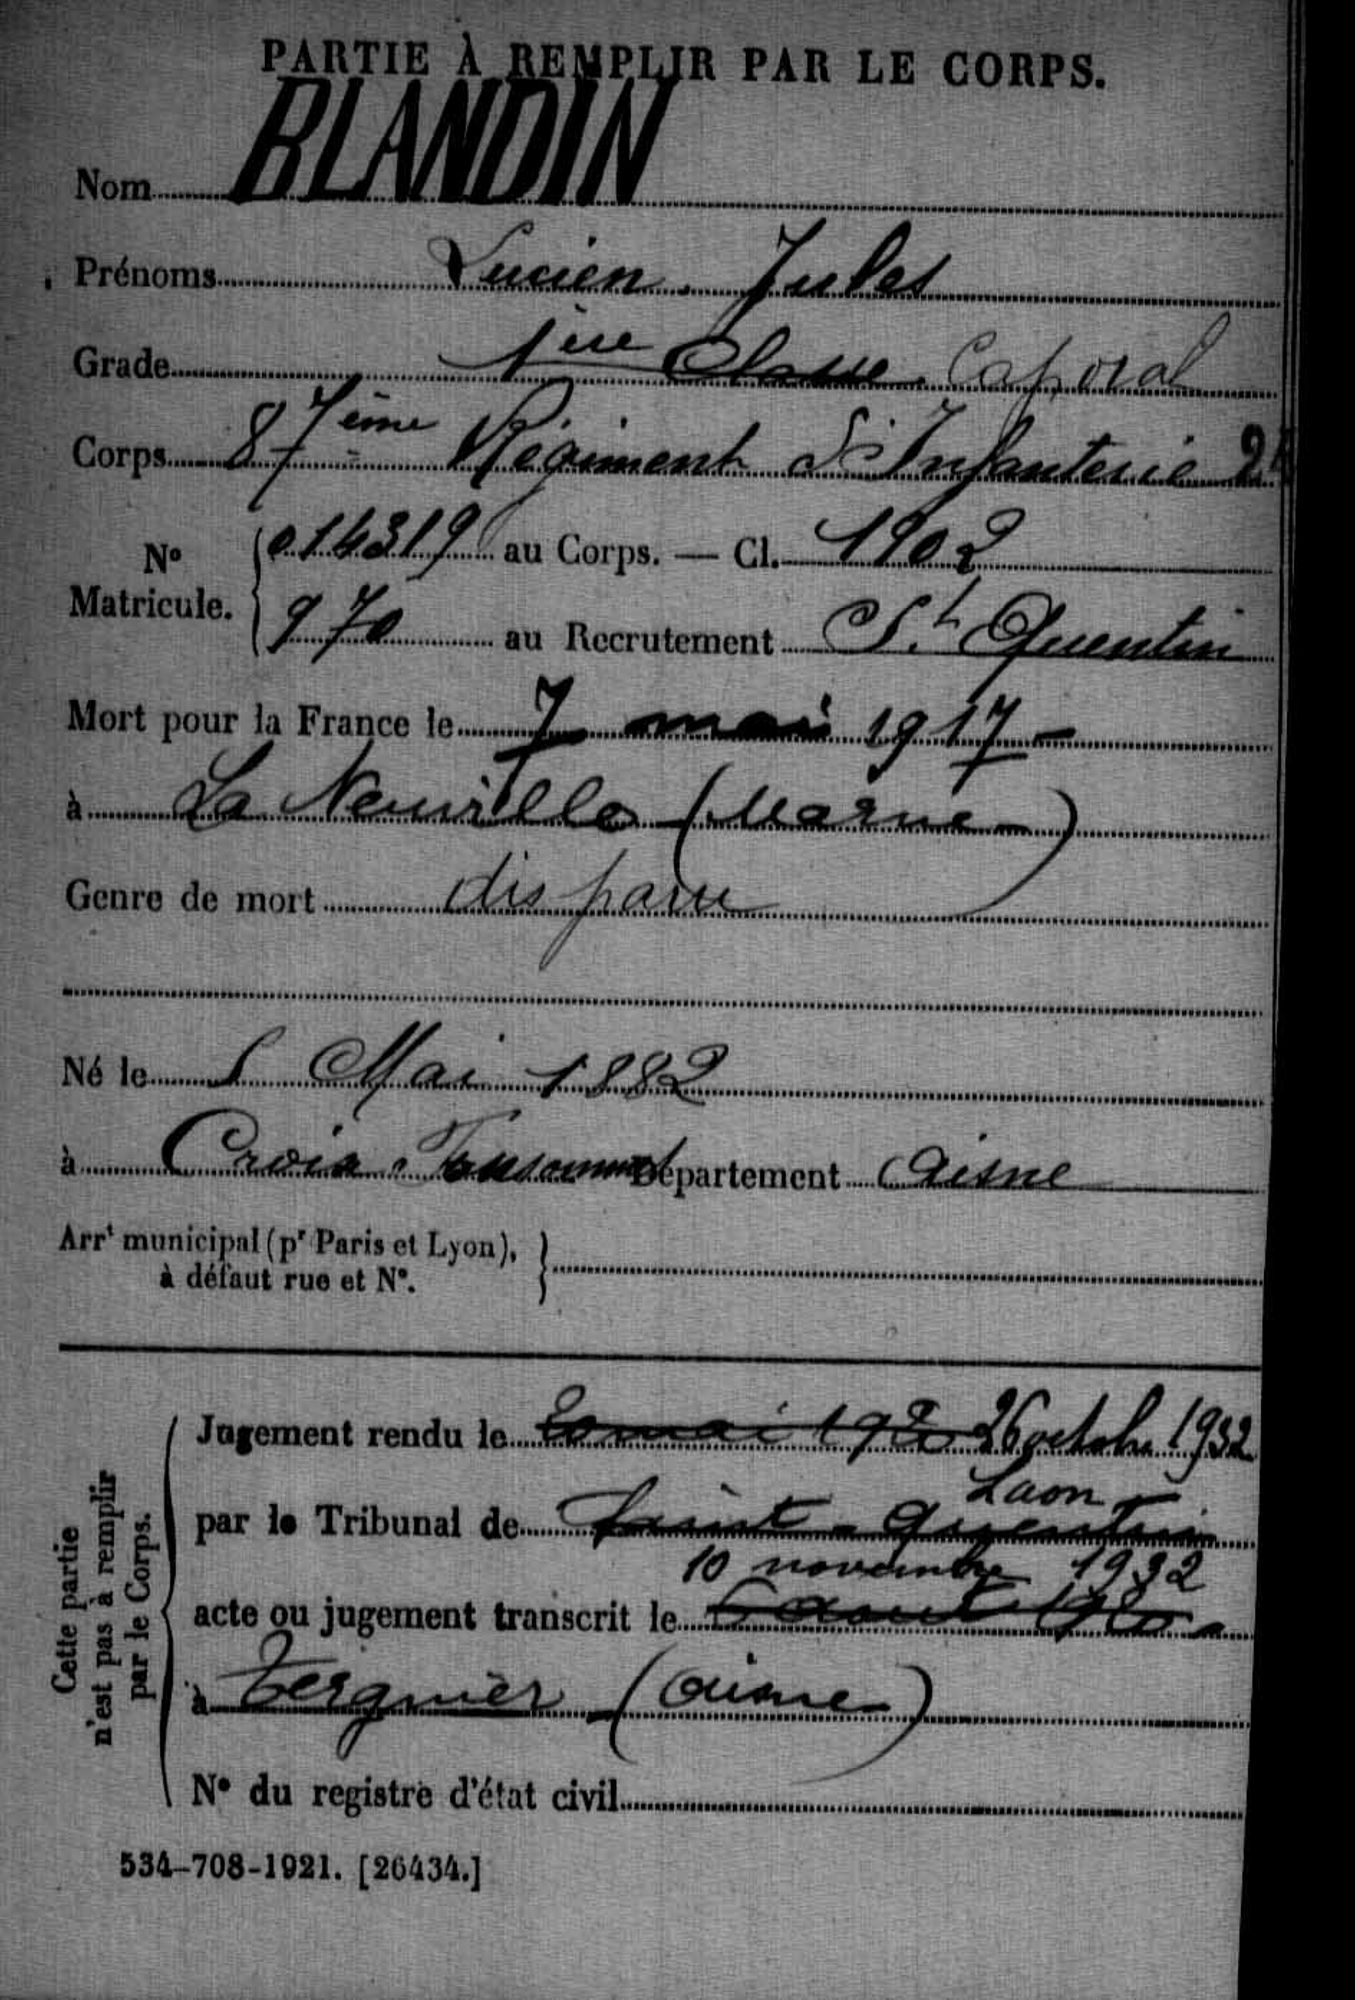 PARTIE À REMPLIR PAR LE CORPS.
Nom BLANDIN
Prénoms Lucien Jules
Grade 1ère Classe Caporal
Corps 87ème Régiment d'Infanterie
N° Matricule. 014319 au Corps. — Cl. 1902
970 au Recrutement St Quentin
Mort pour la France le 7 mai 1917
à La Neuville (Marne)
Genre de mort disparu
Né le Mai 1882
à Croix Fonsommes Département Aisne
Arrt municipal (pr Paris et Lyon),
à défaut rue et N°.
Cette partie
n'est pas à remplir
par le Corps.
Jugement rendu le 20 mai 1920 26 octobre 1932
Laon
par le Tribunal de Saint-Quentin
10 novembre 1932
acte ou jugement transcrit le 6 aout 1920
à Tergnier (Aisne)
N° du registre d'état civil
534-708-1921. [26434.]